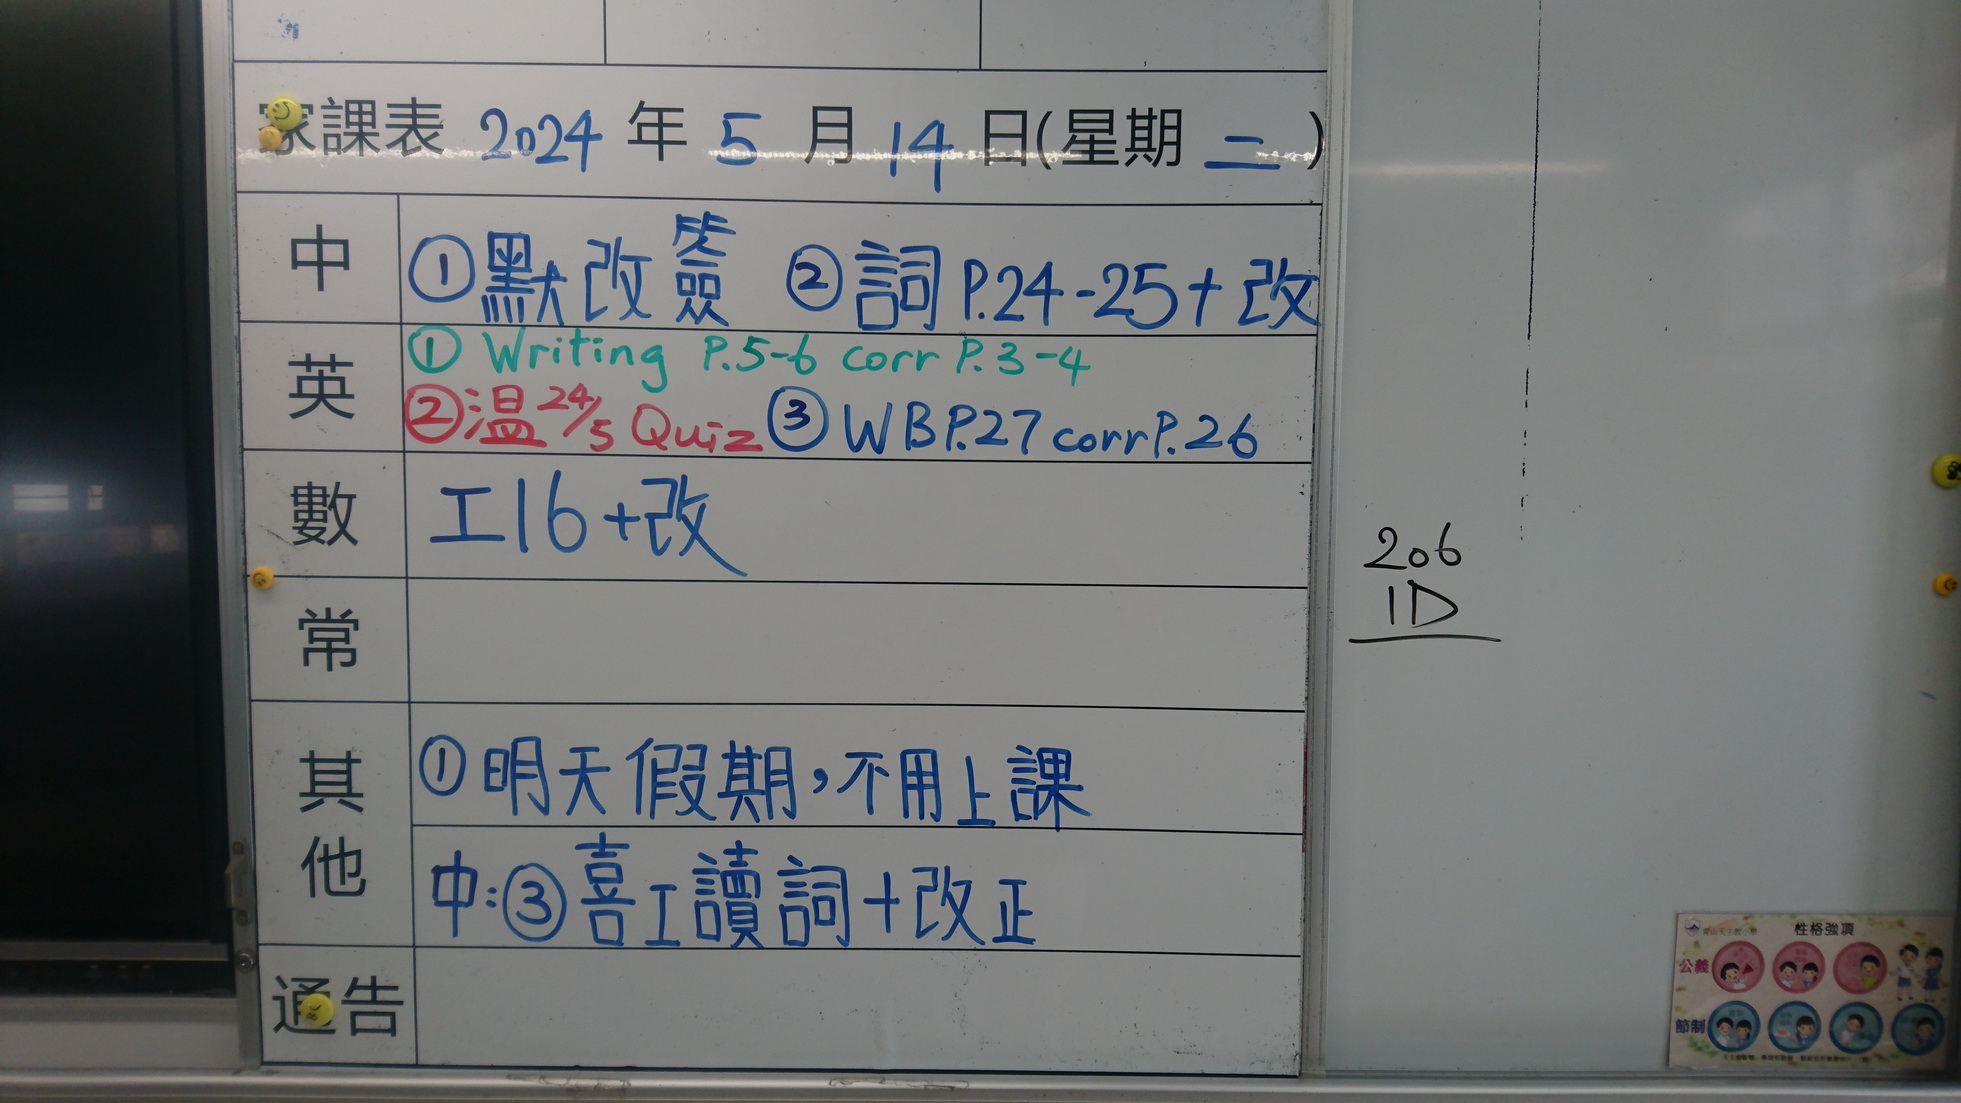 家課表 2024 年 5 月 14 日(星期 二 )
中 ①默改簽 ②詞 P.24-25+改
英 ① Writing P.5-6 corr P.3-4
②温 24/5 Quiz ③ WB P.27 corr P.26
數 工16+改
常
其他 ①明天假期，不用上課
中:③喜工讀詞+改正
通告
206
1D
性格強項
公義
節制